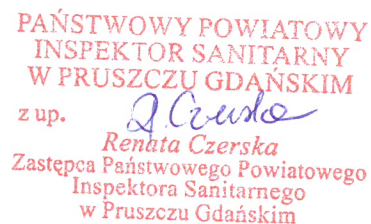 PAŃSTWOWY POWIATOWY
INSPEKTOR SANITARNY
W PRUSZCZU GDAŃSKIM
z up. R. Czerska
Renata Czerska
Zastępca Państwowego Powiatowego
Inspektora Sanitarnego
w Pruszczu Gdańskim